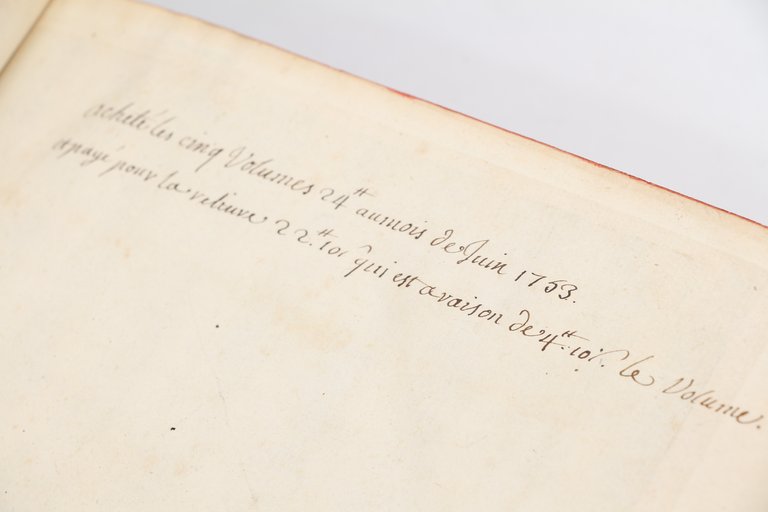 acheté les cinq Volumes 24tt aumois de Juin 1753.
apayé pour la relieure 22.tt 10ſ qui est araison de 4tt:10ſ. le Volume.